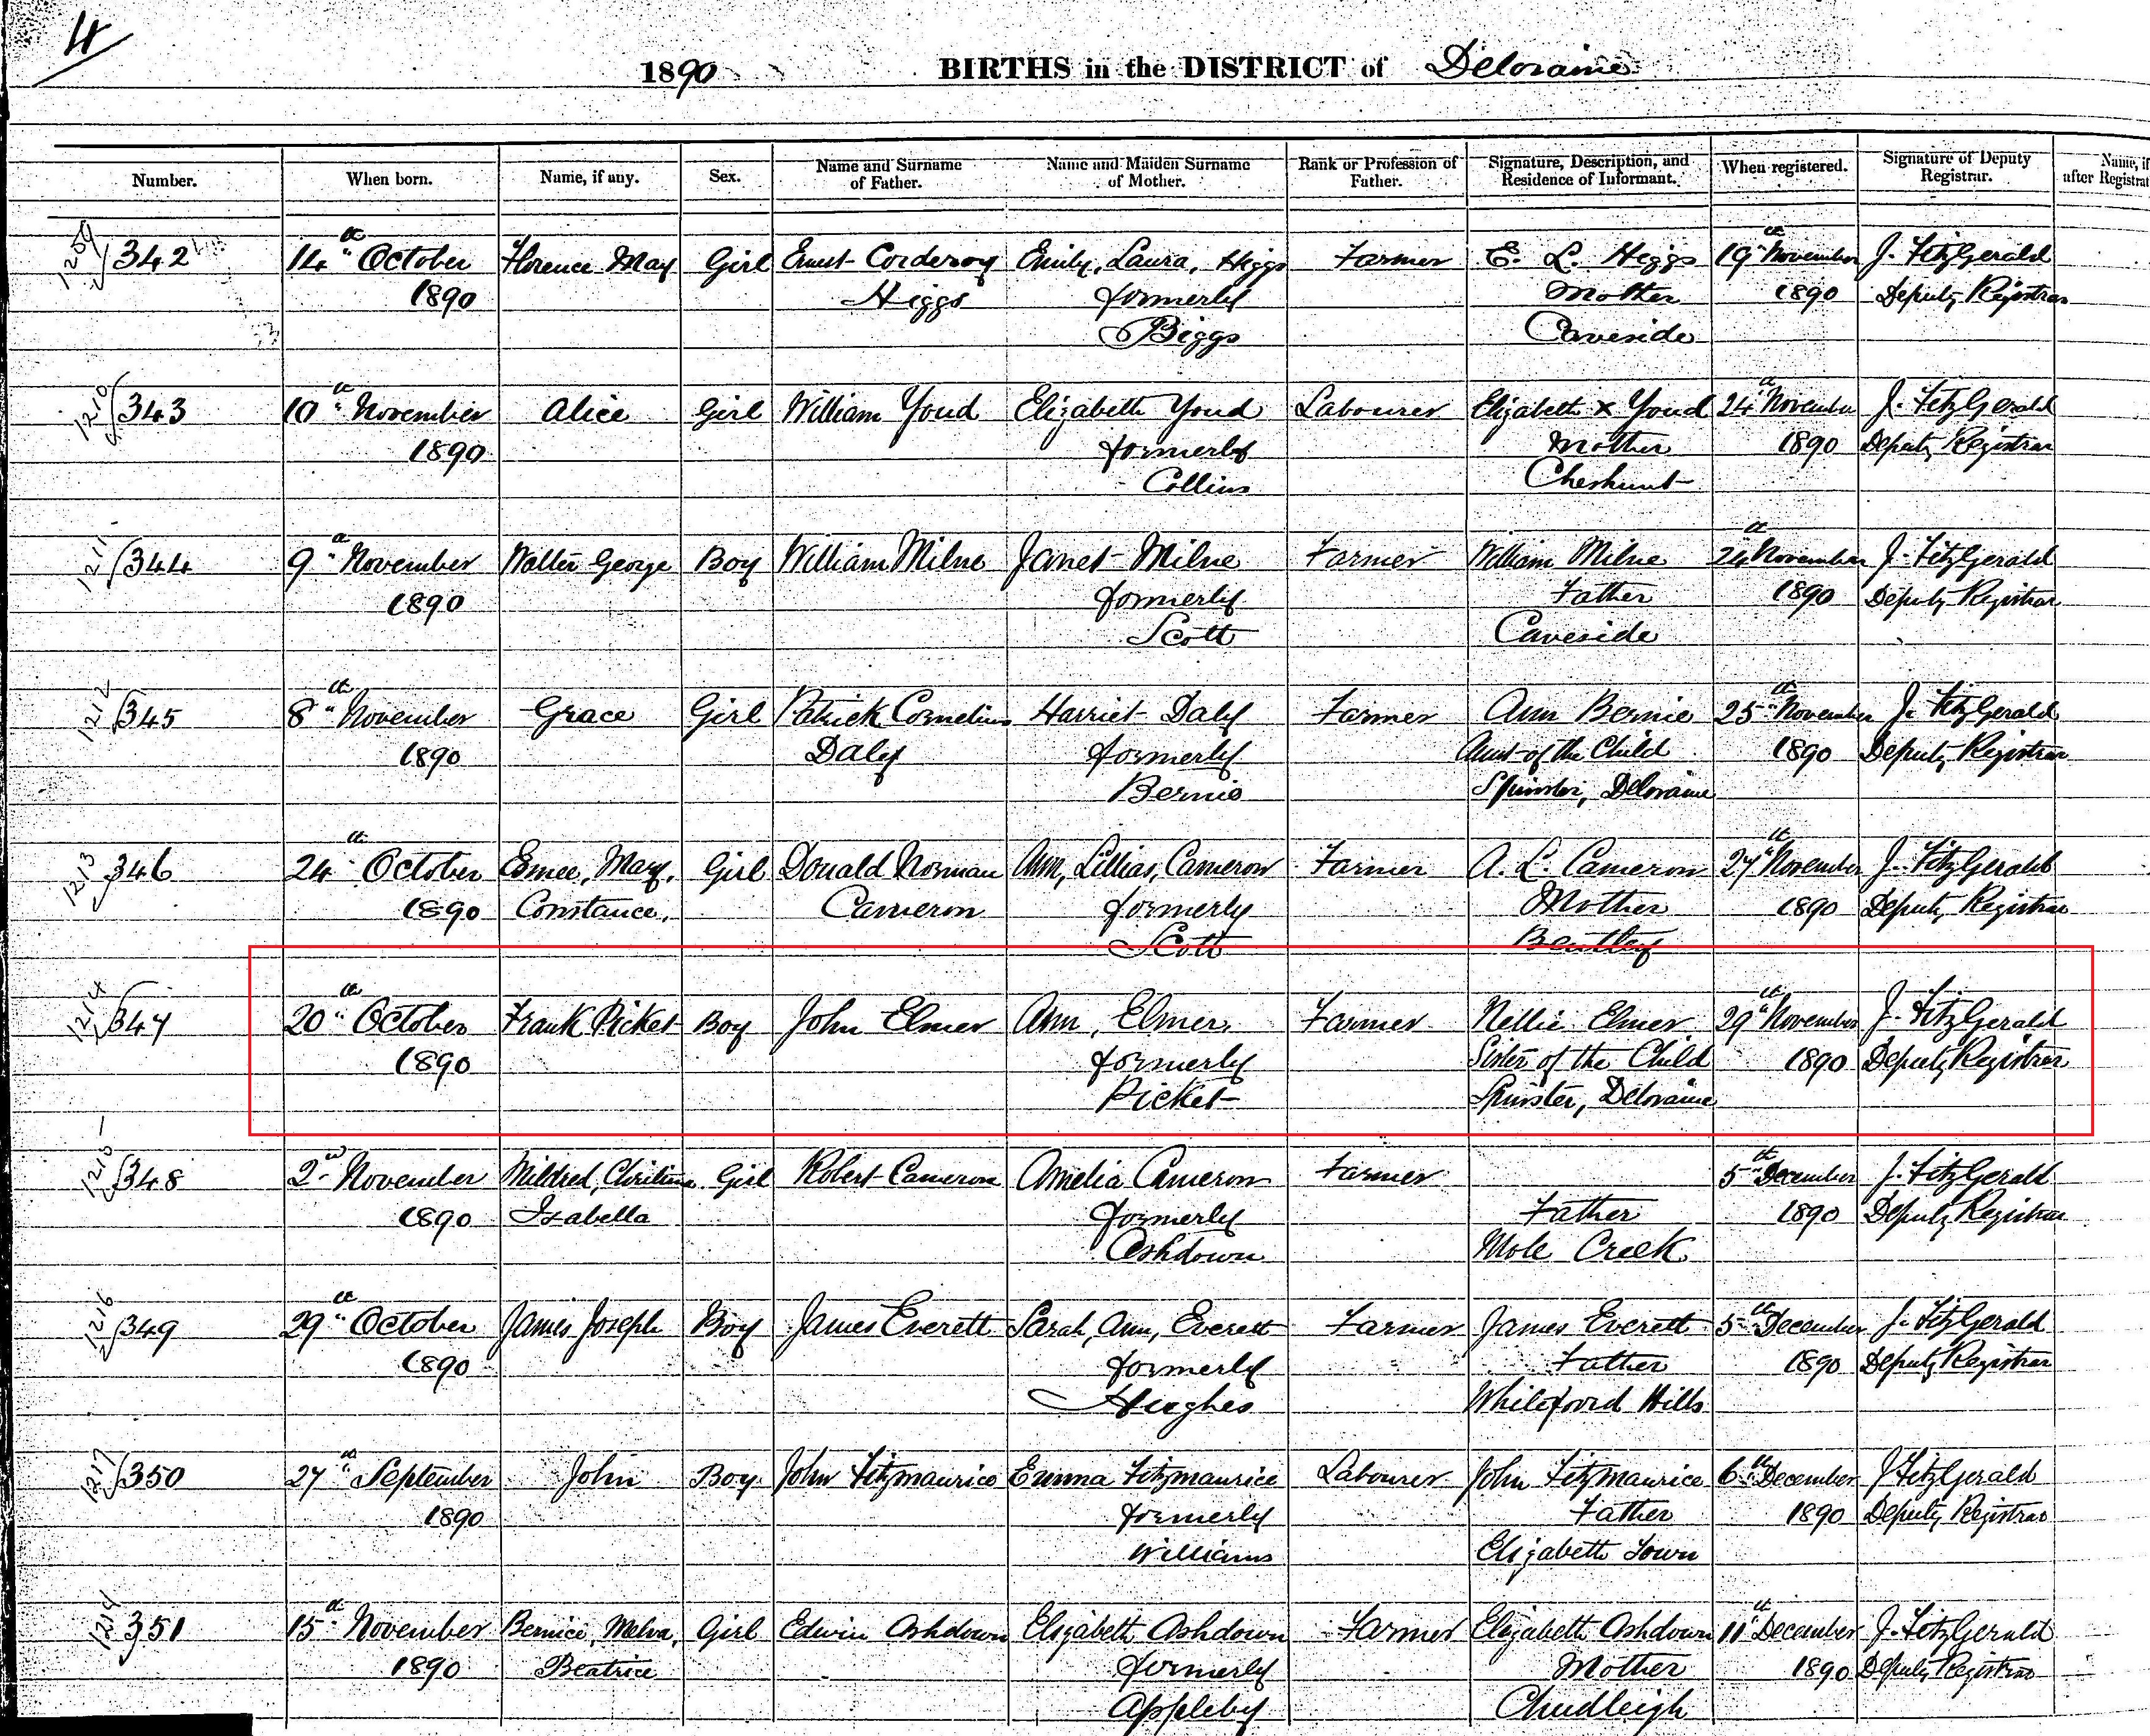 4
1890 BIRTHS in the DISTRICT of Deloraine
Number. When born. Name, if any. Sex. Name and Surname of Father. Name and Maiden Surname of Mother. Rank or Profession of Father. Signature, Description, and Residence of Informant. When registered. Signature of Deputy Registrar. Name, if after Registrat
1209 342 14th October Florence May Girl Ernest Corderoy Emily, Laura, Higgs Farmer E. L. Higgs 19th November J. FitzGerald
1890 Higgs formerly Mother 1890 Deputy Registrar
Biggs Caveside
1210 343 10th November Alice Girl William Youd Elizabeth Youd Labourer Elizabeth x Youd 24th November J. FitzGerald
1890 formerly Mother 1890 Deputy Registrar
Collins Cheshunt
1211 344 9th November Walter George Boy William Milne Janet Milne Farmer William Milne 24th November J. FitzGerald
1890 formerly Father 1890 Deputy Registrar
Scott Caveside
1212 345 8th November Grace Girl Patrick Cornelius Harriet Daly Farmer Ann Bernie 25th November J. FitzGerald
1890 Daly formerly Aunt of the Child 1890 Deputy Registrar
Bernie Spinster, Deloraine
1213 346 24th October Esmee, May, Girl Donald Norman Ann, Lillias, Cameron Farmer A. L. Cameron 27th November J. FitzGerald
1890 Constance, Cameron formerly Mother 1890 Deputy Registrar
Scott Bentley
1214 347 20th October Frank Picket Boy John Elmer Ann, Elmer, Farmer Nellie Elmer 29th November J. FitzGerald
1890 formerly Sister of the Child 1890 Deputy Registrar
Picket Spinster, Deloraine
1215 348 2nd November Mildred, Christina Girl Robert Cameron Amelia Cameron Farmer 5th December J. FitzGerald
1890 Isabella formerly Father 1890 Deputy Registrar
Ashdown Mole Creek
1216 349 29th October James Joseph Boy James Everett Sarah, Ann, Everett Farmer James Everett 5th December J. FitzGerald
1890 formerly Father 1890 Deputy Registrar
Hughes Whiteford Hills
1217 350 27th September John Boy John Fitzmaurice Emma Fitzmaurice Labourer John Fitzmaurice 6th December J FitzGerald
1890 formerly Father 1890 Deputy Registrar
Williams Elizabeth Town
351 15th November Bernice, Melva, Girl Edwin Ashdown Elizabeth Ashdown Farmer Elizabeth Ashdown 11th December J. FitzGerald
1890 Beatrice formerly Mother 1890 Deputy Registrar
Appleby Chudleigh